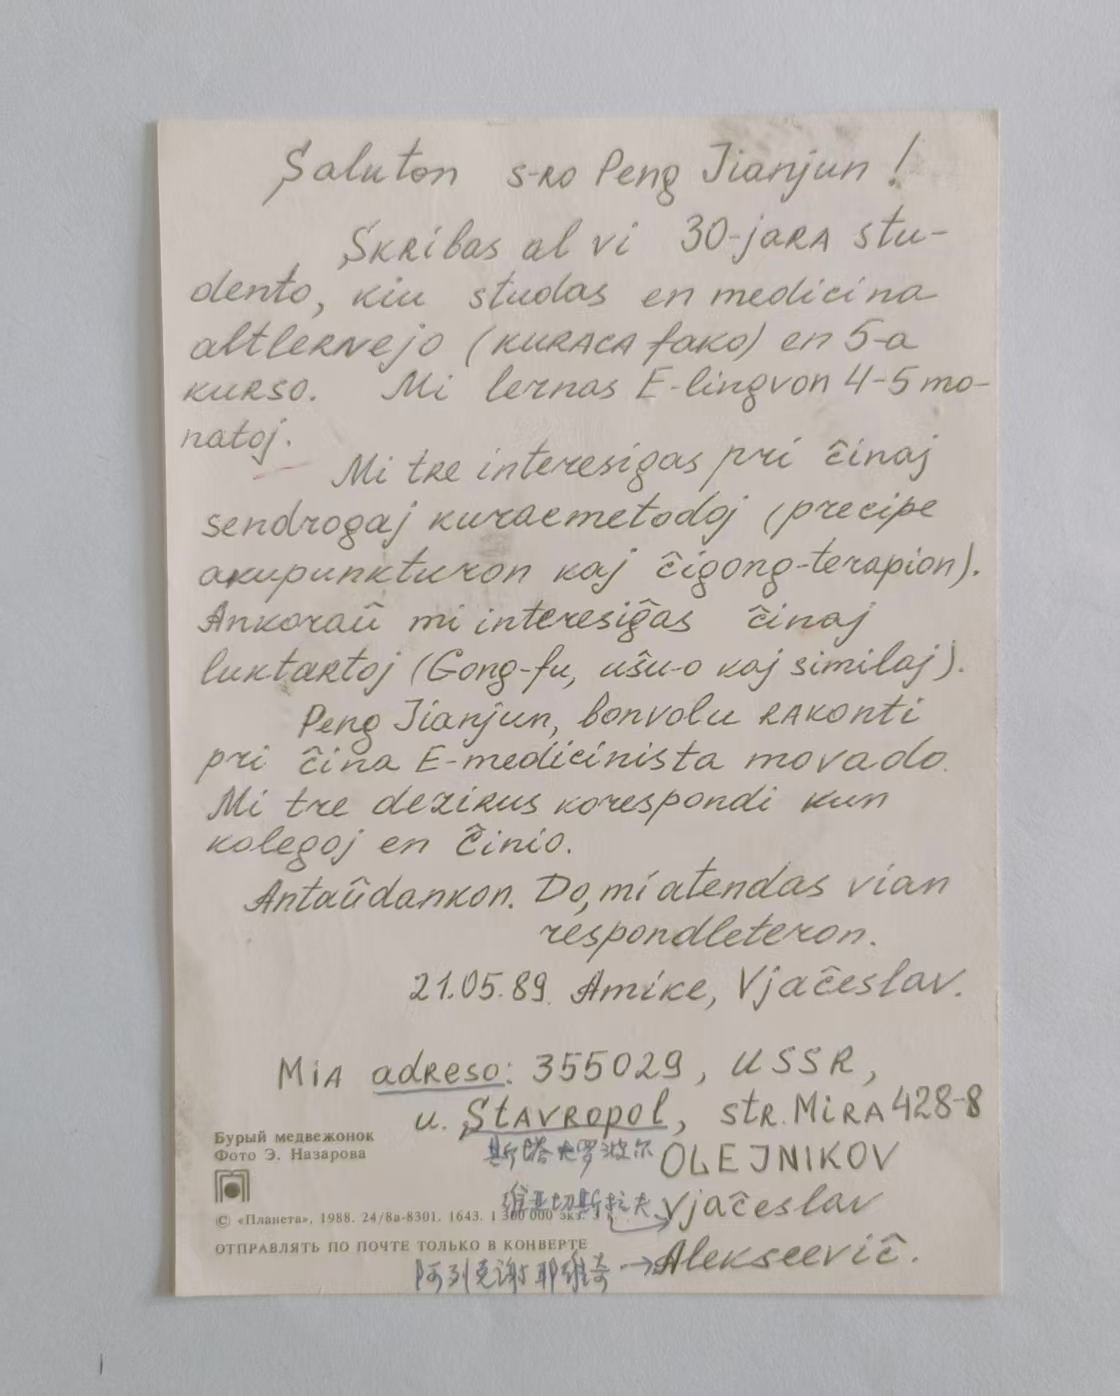 Saluton s-ro Peng Jianjun!
Skribas al vi 30-jara stu-
dento, kiu studas en medicina
altlernejo (kuraca fako) en 5-a
kurso. Mi lernas E-lingvon 4-5 mo-
natoj.
Mi tre interesigas pri ĉinaj
sendrogaj kuracmetodoj (precipe
akupunkturon kaj ĉigong-terapion).
Ankoraŭ mi interesiĝas ĉinaj
luktartoj (Gong-fu, uŝu-o kaj similaj).
Peng Jianjun, bonvolu rakonti
pri ĉina E-medicinista movado.
Mi tre dezirus korespondi kun
kolegoj en Ĉinio.
Antaŭdankon. Do, mi atendas vian
respondleteron.
21.05.89. Amike, Vjaĉeslav.
Mia adreso: 355029, USSR,
u. Stavropol, str. Mira 428-8
斯塔夫罗波尔 OLEJNIKOV
维亚切斯拉夫 → Vjaĉeslav
阿列克谢耶维奇 → Alekseeviĉ.
Бурый медвежонок
Фото Э. Назарова
© «Планета», 1988. 24/8а-8301. 1643. 1 300 000 экз.
ОТПРАВЛЯТЬ ПО ПОЧТЕ ТОЛЬКО В КОНВЕРТЕ